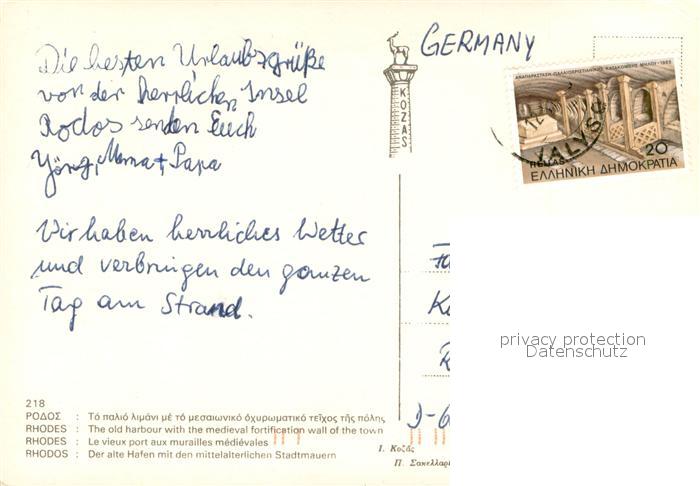 Die besten Urlaubsgrüße
von der herrlichen Insel
Rodos senden Euch
Jörg, Mama + Papa
Wir haben herrliches Wetter
und verbringen den ganzen
Tag am Strand.
GERMANY
KOZAS
ΑΝΑΠΑΡΑΣΤΑΣΗ ΠΑΛΑΙΟΧΡΙΣΤΙΑΝΙΚΗΣ ΚΑΤΑΚΟΜΒΗΣ ΜΗΛΟΥ - 1985
HELLAS 20
ΕΛΛΗΝΙΚΗ ΔΗΜΟΚΡΑΤΙΑ
IALYSO
privacy protection
Datenschutz
D-6
218
ΡΟΔΟΣ : Τό παλιό λιμάνι μέ τό μεσαιωνικό ὀχυρωματικό τεῖχος τῆς πόλης
RHODES : The old harbour with the medieval fortification wall of the town
RHODES : Le vieux port aux murailles médiévales
RHODOS : Der alte Hafen mit den mittelalterlichen Stadtmauern
Ι. Κοζᾶς
Π. Σακελλαρ